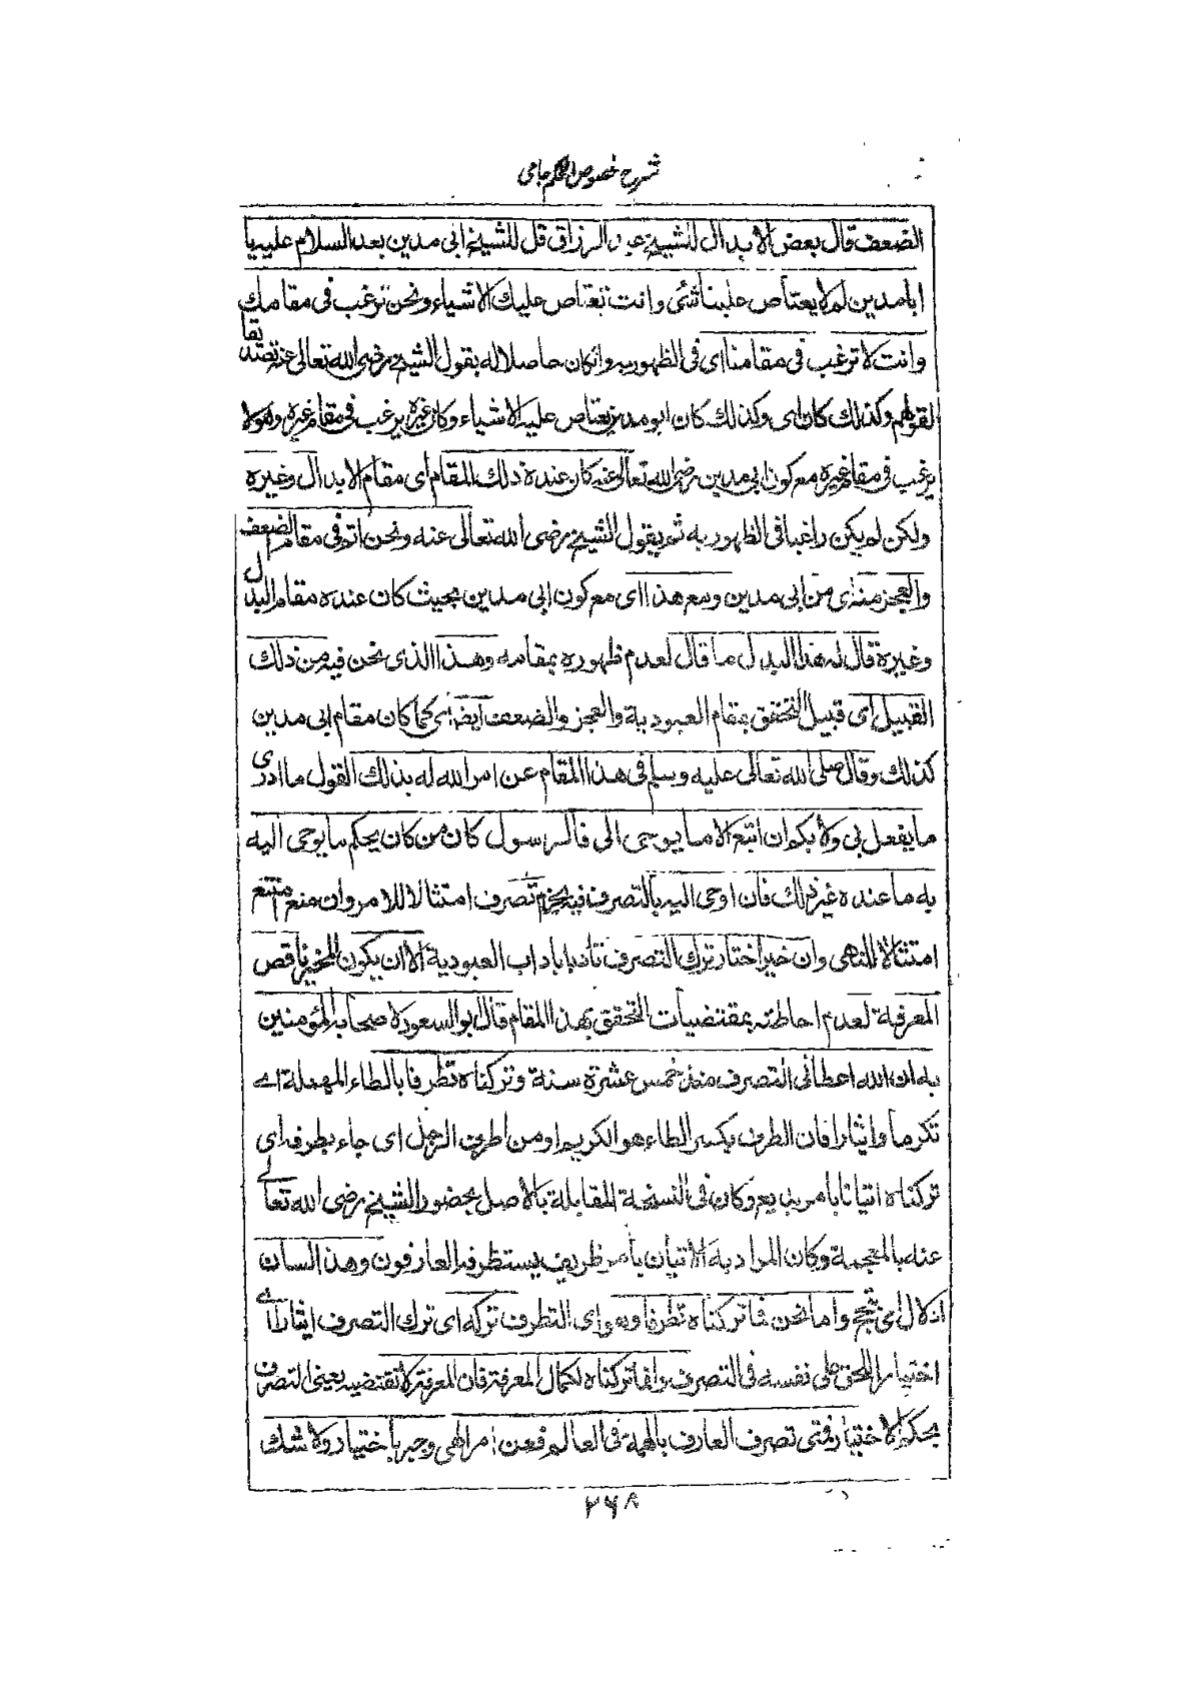 شرح فصوص الحكم جامى
الضعف قال بعض الابدال للشيخ عبد الرزاق قل للشيخ ابى مدين بعد السلام عليه يا
ابا مدين لم لا يعتاص علينا شئ وانت تعتاص عليك الاشياء ونحن نرغب فى مقامك
وانت لا ترغب فى مقامنا اى فى الظهور به وان كان حاصلا له يقول الشيخ رضى الله تعالى عنه تصديقا
لقولهم وكذلك كان اى وكذلك كان ابو مدين يعتاص عليه الاشياء وكان غيره يرغب فى مقام غيره وهو لا
يرغب فى مقام غيره مع كون ابى مدين رضى الله تعالى عنه كان عنده ذلك المقام اى مقام الابدال وغيره
ولكن لم يكن راغبا فى الظهور به ثم يقول الشيخ رضى الله تعالى عنه ونحن اتم فى مقام الضعف
والعجز منه اى من ابى مدين ومع هذا اى مع كون ابى مدين بحيث كان عنده مقام البدل
وغيره قال له هذا البدل ما قال لعدم ظهوره بمقامه وهذا الذى نحن فيه من ذلك
القبيل اى قبيل التحقق بمقام العبودية والعجز والضعف ايضا اى كما كان مقام ابى مدين
كذلك وقال صلى الله تعالى عليه وسلم فى هذا المقام عن امر الله له بذلك القول ما ادرى
ما يفعل بى ولا بكم ان اتبع الا ما يوحى الى فالرسول كان من كان بحكم ما يوحى اليه
به ما عنده غير ذلك فان اوحى اليه بالتصرف فيه بجزم تصرف امتثالا للامر وان منع امتنع
امتثالا للنهى وان خير اختار ترك التصرف تادبا باداب العبودية الا ان يكون المخير ناقص
المعرفة لعدم احاطته بمقتضيات التحقق بهذا المقام قال ابو السعود لاصحابه المؤمنين
به ان الله اعطانى التصرف منذ خمس عشرة سنة وتركناه تطرفا بالطاء المهملة اى
تكرما وايثارا فان الطرف بكسر الطاء هو الكريم او من اطرف الرجل اى جاء بطرفة اى
تركناه اتيانا بامر بديع وكان فى النسخة المقابلة بالاصل بحضور الشيخ رضى الله تعالى
عنه بالمعجمة وكان المراد به الاتيان بامر ظريف يستظرفه العارفون وهذا لسان
ادلال اى تبجح واما نحن فما تركناه تطرفا وهو اى التطرف تركه اى ترك التصرف ايثارا اى
اختيارا للحق على نفسه فى التصرف وانما تركناه لكمال المعرفة فان المعرفة لا تقتضيه يعنى التصرف
بحكم الاختيار فمتى تصرف العارف بالهمة فى العالم فعن امر الهى وجبر لا باختيار ولا شك
٢٦٨